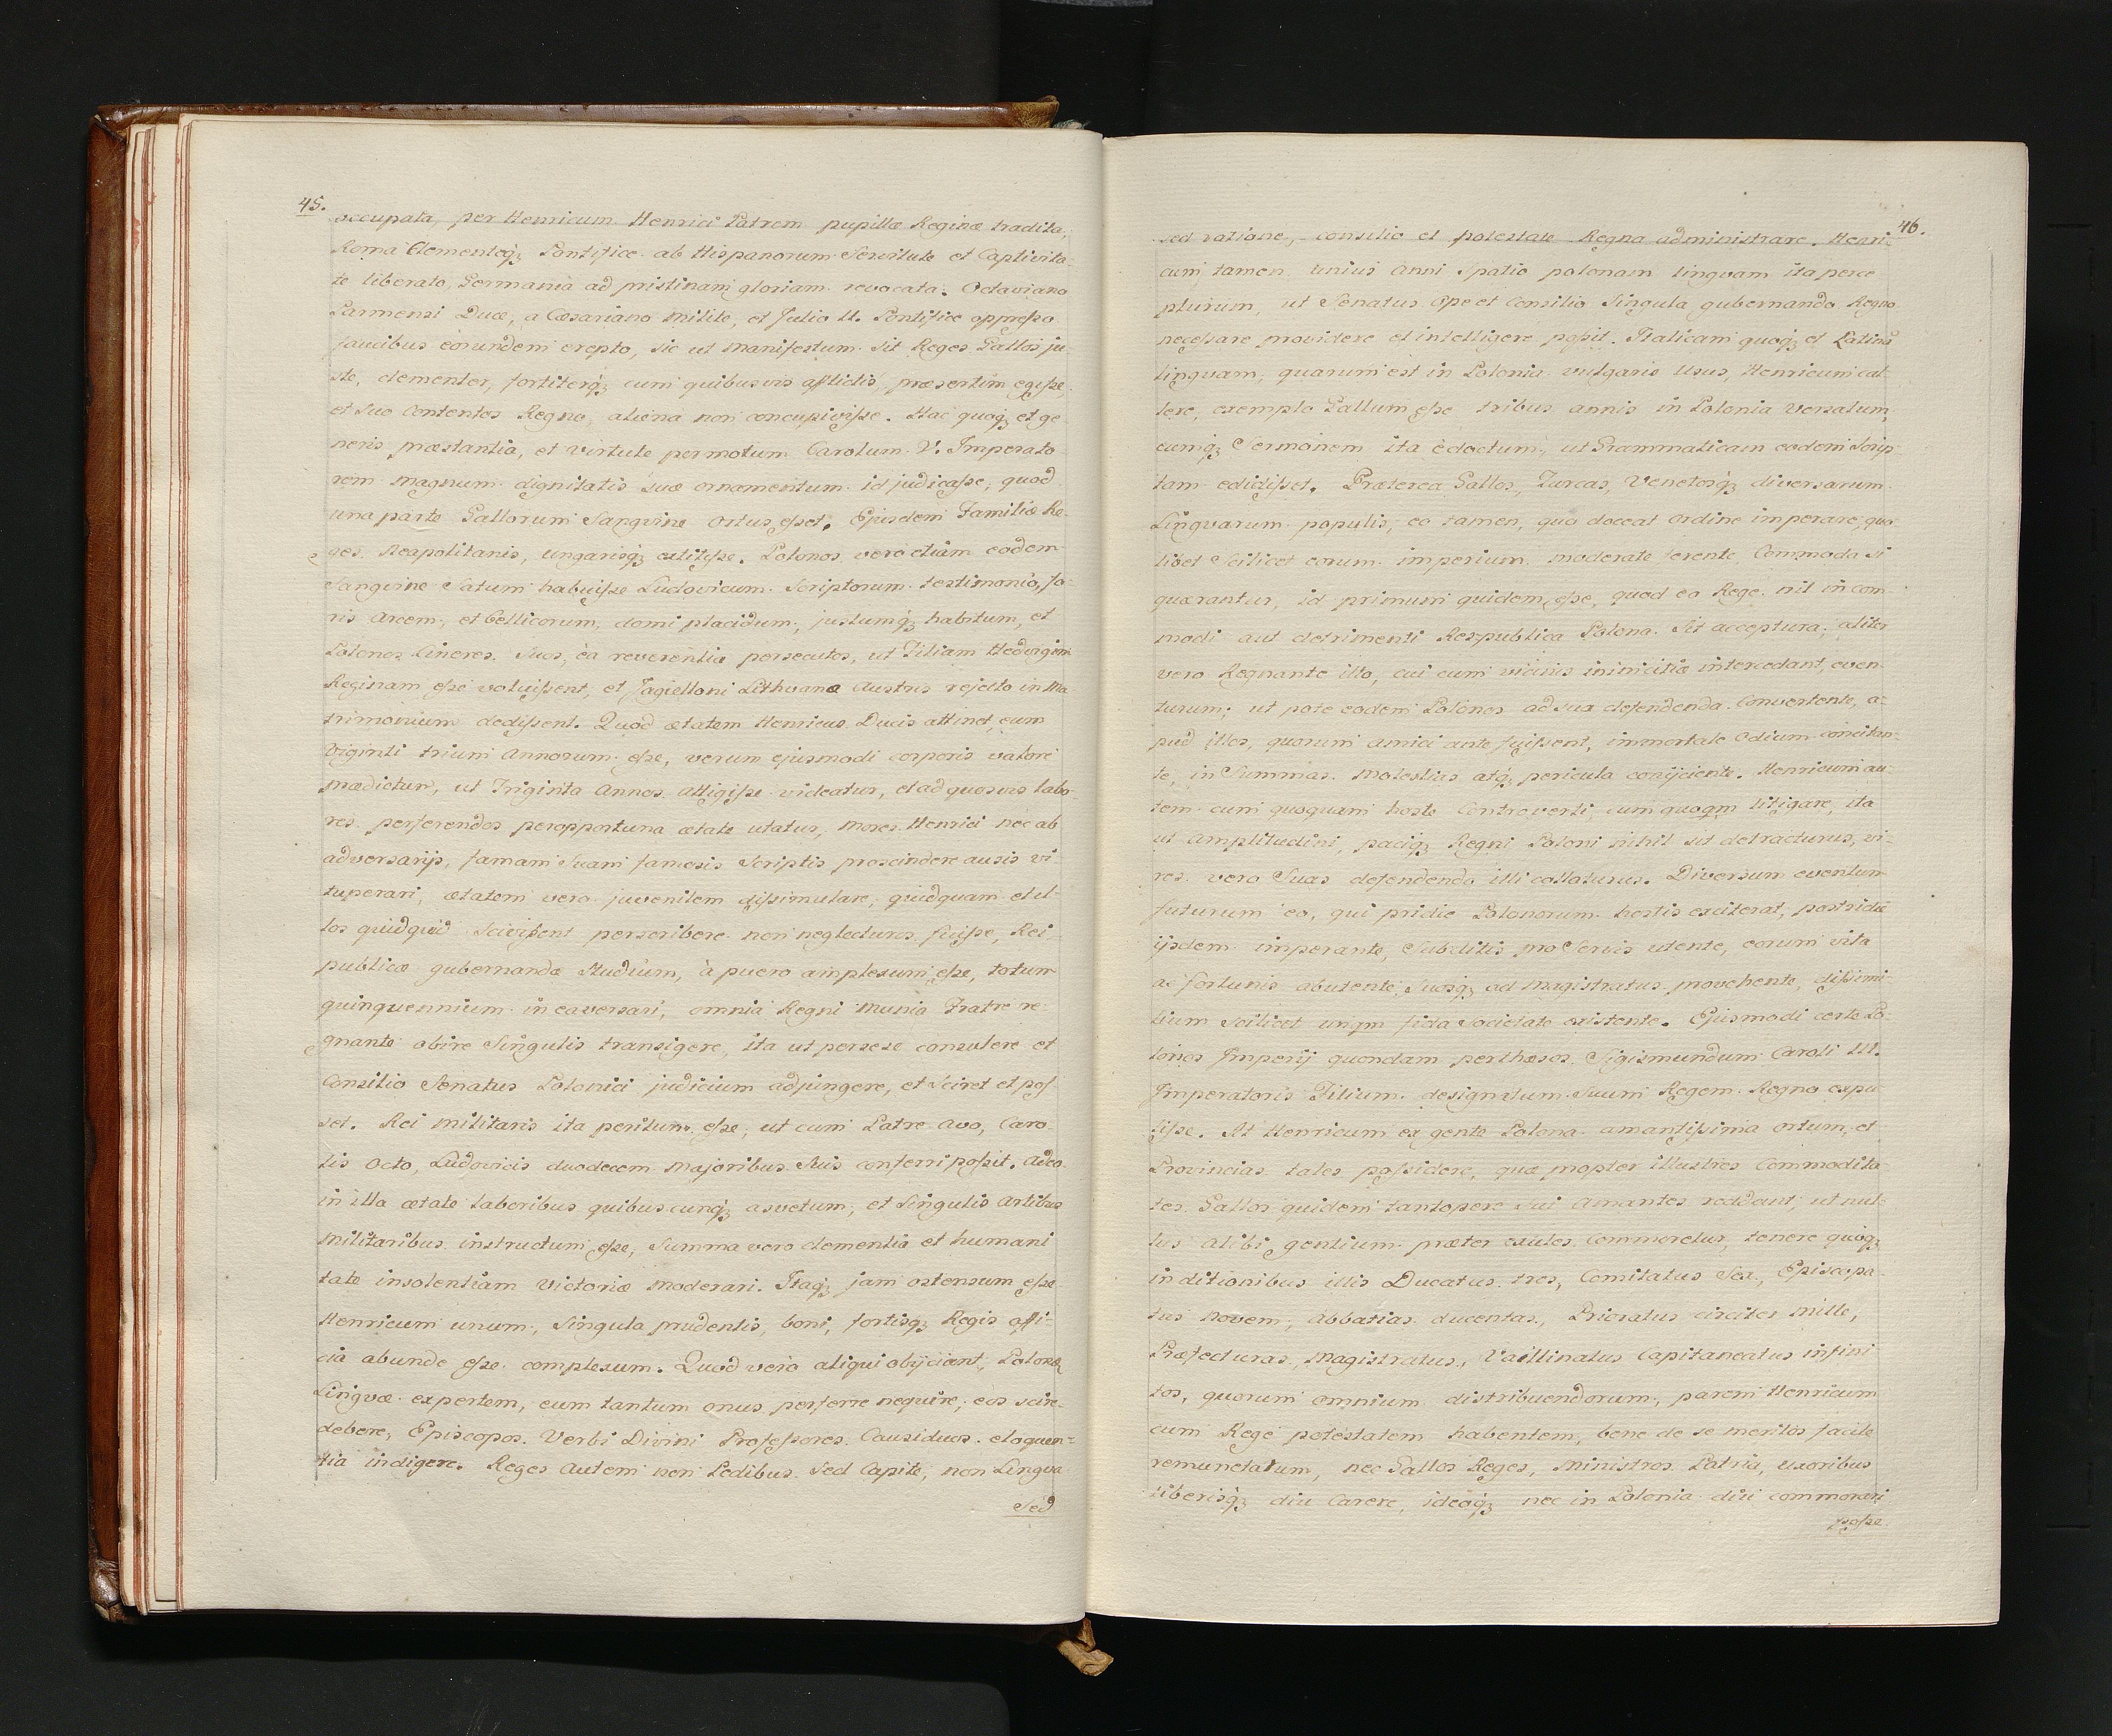 45.
occupata, per Henricum Henrici Patrem pupillæ Reginæ tradita,
Roma Clementeq3 Pontifice ab Hispanorum Servitute et Captivita=
te liberato, Germania ad pristinam gloriam revocata. Octaviano
Parmensi Duce, a Cæsariano Milite, et Julio II. Pontifice oppresso
faucibus eorundem erepto, sic ut manifestum sit Reges Gallos ju
ste, clementer, fortiterq3 cum quibusvis afflictis, præsertim egisse,
et Suo Contentos Regno, aliena non concupivisse. Hac quoq3 et ge
neris præstantia, et virtute permotum Carolum V. Imperato
rem magnum dignitatis suæ ornamentum id judicasse, quod
una parte Gallorum Sangvine ortus esset. Ejusdem Familiæ Re=
ges Neapolitanis, ungarisq3 extitisse. Polonos vero etiam eodem
Sangvine Satum habuisse Ludovicum Scriptorum testimonio, fo=
ris Arcem, et bellicorum, domi placidum, justumq3 habitum, et
Polonos Cineres Suos, ea reverentia persecutos, ut Filiam Hedvigem
Reginam esse voluissent, et Jagielloni Lithvano Austris rejecto in Ma
trimonium dedissent. Quod ætatem Henricus Ducis attinet, eum
Viginti trium Annorum esse, verum ejusmodi corporis valore
prædictum, ut Triginta Annos attigisse videatur, et ad quosvis labo=
res perferendos peropportuna ætate utatur, mores Henrici nec ab
adversarijs, famam Suam famosis Scriptis proscindere ausis vi=
tuperari, ætatem vero juvenilem dissimulare, quidquam et il=
los quidquid Scivissent perscribere non neglecturos fuisse, Rei=
publicæ gubernandæ Studium, à puero amplexum esse, totum
quinquennium in ea versari, omnia Regni Munia Fratre re=
gnante obire Singulis transigere, ita ut per sese consulere et
Consilio Senatus Polonici judicium adjungere, et Sciret et pos
set. Rei militaris ita peritum esse, ut cum Patre Avo, Caro=
lis Octo, Ludovicis duodecem Majoribus Suis conferri possit. Adeo
in illa ætate laboribus quibuscunq3 asvetum, et Singulis Artibus
Militaribus instructum esse, Summa vero clementia et humani
tate insolentiam Victoriæ Moderari. Itaq3 jam ostensum esse
Henricum unum, Singula prudentis, boni, fortisq3 Regis offi=
cia abunde esse complexum. Quod vero aliqui obijciant, Polonæ
Lingvæ expertem, eum tantum onus perferre nequire, eos scire
debere, Episcopos Verbi Divini Professores, Causiduos eloquen=
tia indigere. Reges Autem non Pedibus Sed Capite, non Lingva
Sed
46.
sed ratione, consilio et potestate Regna administrare. Henri=
cum tamen unius Anni Spatio polonam lingvam ita perce
pturum, ut Senatus Ope et Consilio Singula gubernando Regno
necessare providere et intelligere possit. Italicam quoq3 et Latina
lingvam, quarum est in Polonia vulgaris Usus, Henricum cal
lere, exemplo Gallum esse tribus annis in Polonia Versatum,
eumq3 Sermonem ita edoctum, ut Grammaticam eodem Scrip
tam edidisset. Præterea Gallos, Turcas, Venetosq3 diversarum
Lingvarum populis, eo tamen, quo doceat Ordine imperare, quo
libet Scilicet eorum imperium moderate ferente. Commoda si
quærantur, id primum quidem esse, quod eo Rege nil incom=
modi aut detrimenti Respublica Polona Sit acceptura, aliter
vero Regnante illo, cui cum vicinis inimicitiæ intercedant, even=
turum, ut pote eodem Polonos ad sua defendenda Convertente, a=
pud illos, quorum amici ante fuissent, immortale Odium concitan=
te, in Summas Molestias atq3 pericula conijciente. Henricum au
tem cum quoquam hoste Controverti, cum quoqm litigare, ita
ut Amplitudini, paciq3 Regni Poloni nihil sit detracturus, vi=
res vero Suas defendendo illi collaturus. Diversum eventum
futurum eo, qui pridie Polonorum hostis exciterat, postridie
ijsdem imperante, Subditis pro Servis utente, eorum vita
ac fortunis abutente, Suosq3 ad Magistratus provehente, dissimi=
lium Scilicet unqm fida Societate existente. Ejusmodi certe Po
lonos Imperij quondam perthæsos Sigismundum Caroli III.
Imperatoris Filium designatum Suum Regem Regno expu
lisse. At Henricum ex gente Polona amantissima ortum, et
Provincias tales possidere, quæ propter illustres Commodita
tes Gallos quidem tantopere sui Amantes reddant, ut nul=
lus alibi gentium præter exules Commoretur, tenere quoq3
in ditionibus illis Ducatus tres, Comitatus Sex, Episcopa=
tus Novem, Abbatias ducentas, Prioratus circiter Mille,
Præfecturas, Magistratus, Vaillinatus Capitaneatus infini
tos, quorum omnium distribuendorum, parem Henricum
cum Rege potestatem habentem, bene de se meritos facile
remuneratum, nec Gallos Reges, Ministros Patria, uxoribus
liberisq3 diu Carere, ideoq3 nec in Polonia diu commorari
posse